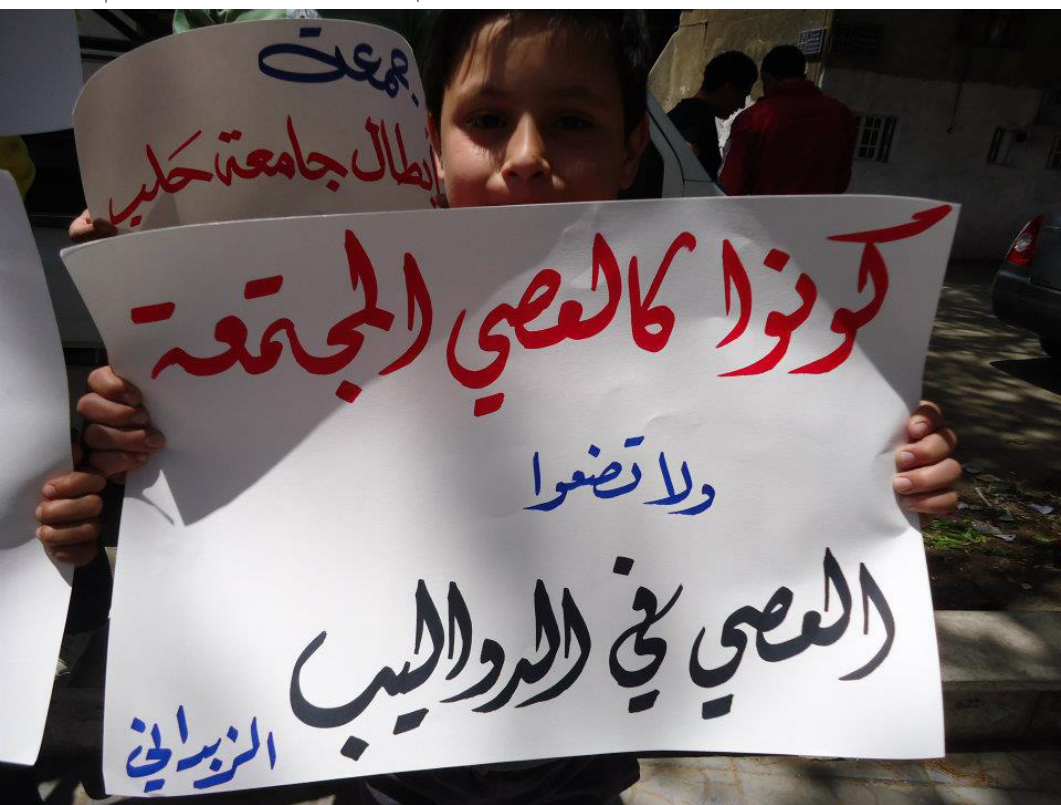 جمعة
أبطال جامعة حلب
كونوا كالعصي المجتمعة
ولا تضعوا
العصي في الدواليب
الزبداني